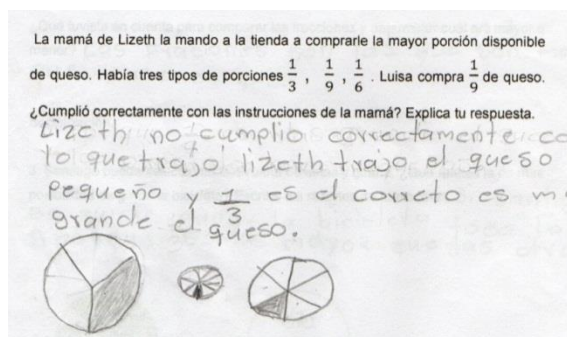 La mamá de Lizeth la mando a la tienda a comprarle la mayor porción disponible
de queso. Había tres tipos de porciones 1/3 , 1/9 , 1/6 . Luisa compra 1/9 de queso.
¿Cumplió correctamente con las instrucciones de la mamá? Explica tu respuesta.
Lizeth no cumplio correctamente co
lo que trajo lizeth trajo el queso
pequeño y 1/3 es el correcto es m
grande el queso.